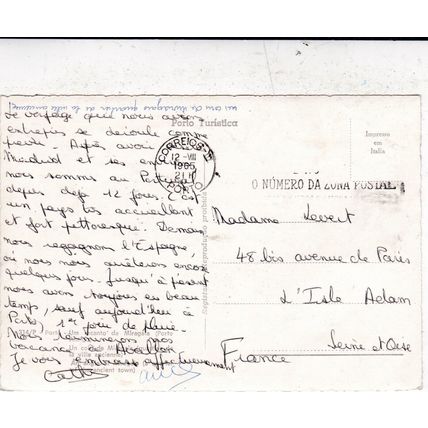 un coin de Miragaia quartier de la ville ancienne!
Porto Turística
Impresso
em
Italia
Le voyage que nous avons
entrepris se déroule comme
prévu. Après avoir
Madrid et ses en
nous sommes au Portugal
depuis déjà 12 jours. C'est
un pays très accueillant
et fort pittoresque. Demain
nous regagnons l'Espagne,
où nous nous arrêterons encore
quelques jours. Jusqu'à présent
nous avons toujours eu beau
temps, sauf aujourd'hui à
Porto 1er jour de pluie.
Nous terminerons nos
vacances à Avallon
Je vous embrasse affectueusement
Cathy
CORREIOS
12-VIII
1965
21H
PORTO
O NÚMERO DA ZONA POSTAL
Madame Levert
48 bis avenue de Paris
L'Isle Adam
Seine et Oise
France
Um recanto de Miragaia (Porto
ancient town)